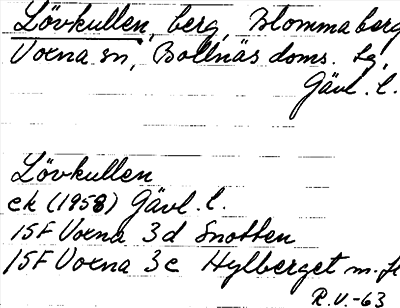 Lövkullen, berg, Blommaberg
Voxna sn, Bollnäs doms. lg,
Gävl. l.
Lövkullen
ek (1958) Gävl. l.
15F Voxna 3d Snotten
15F Voxna 3c Hylberget m. fl
R.V.-63